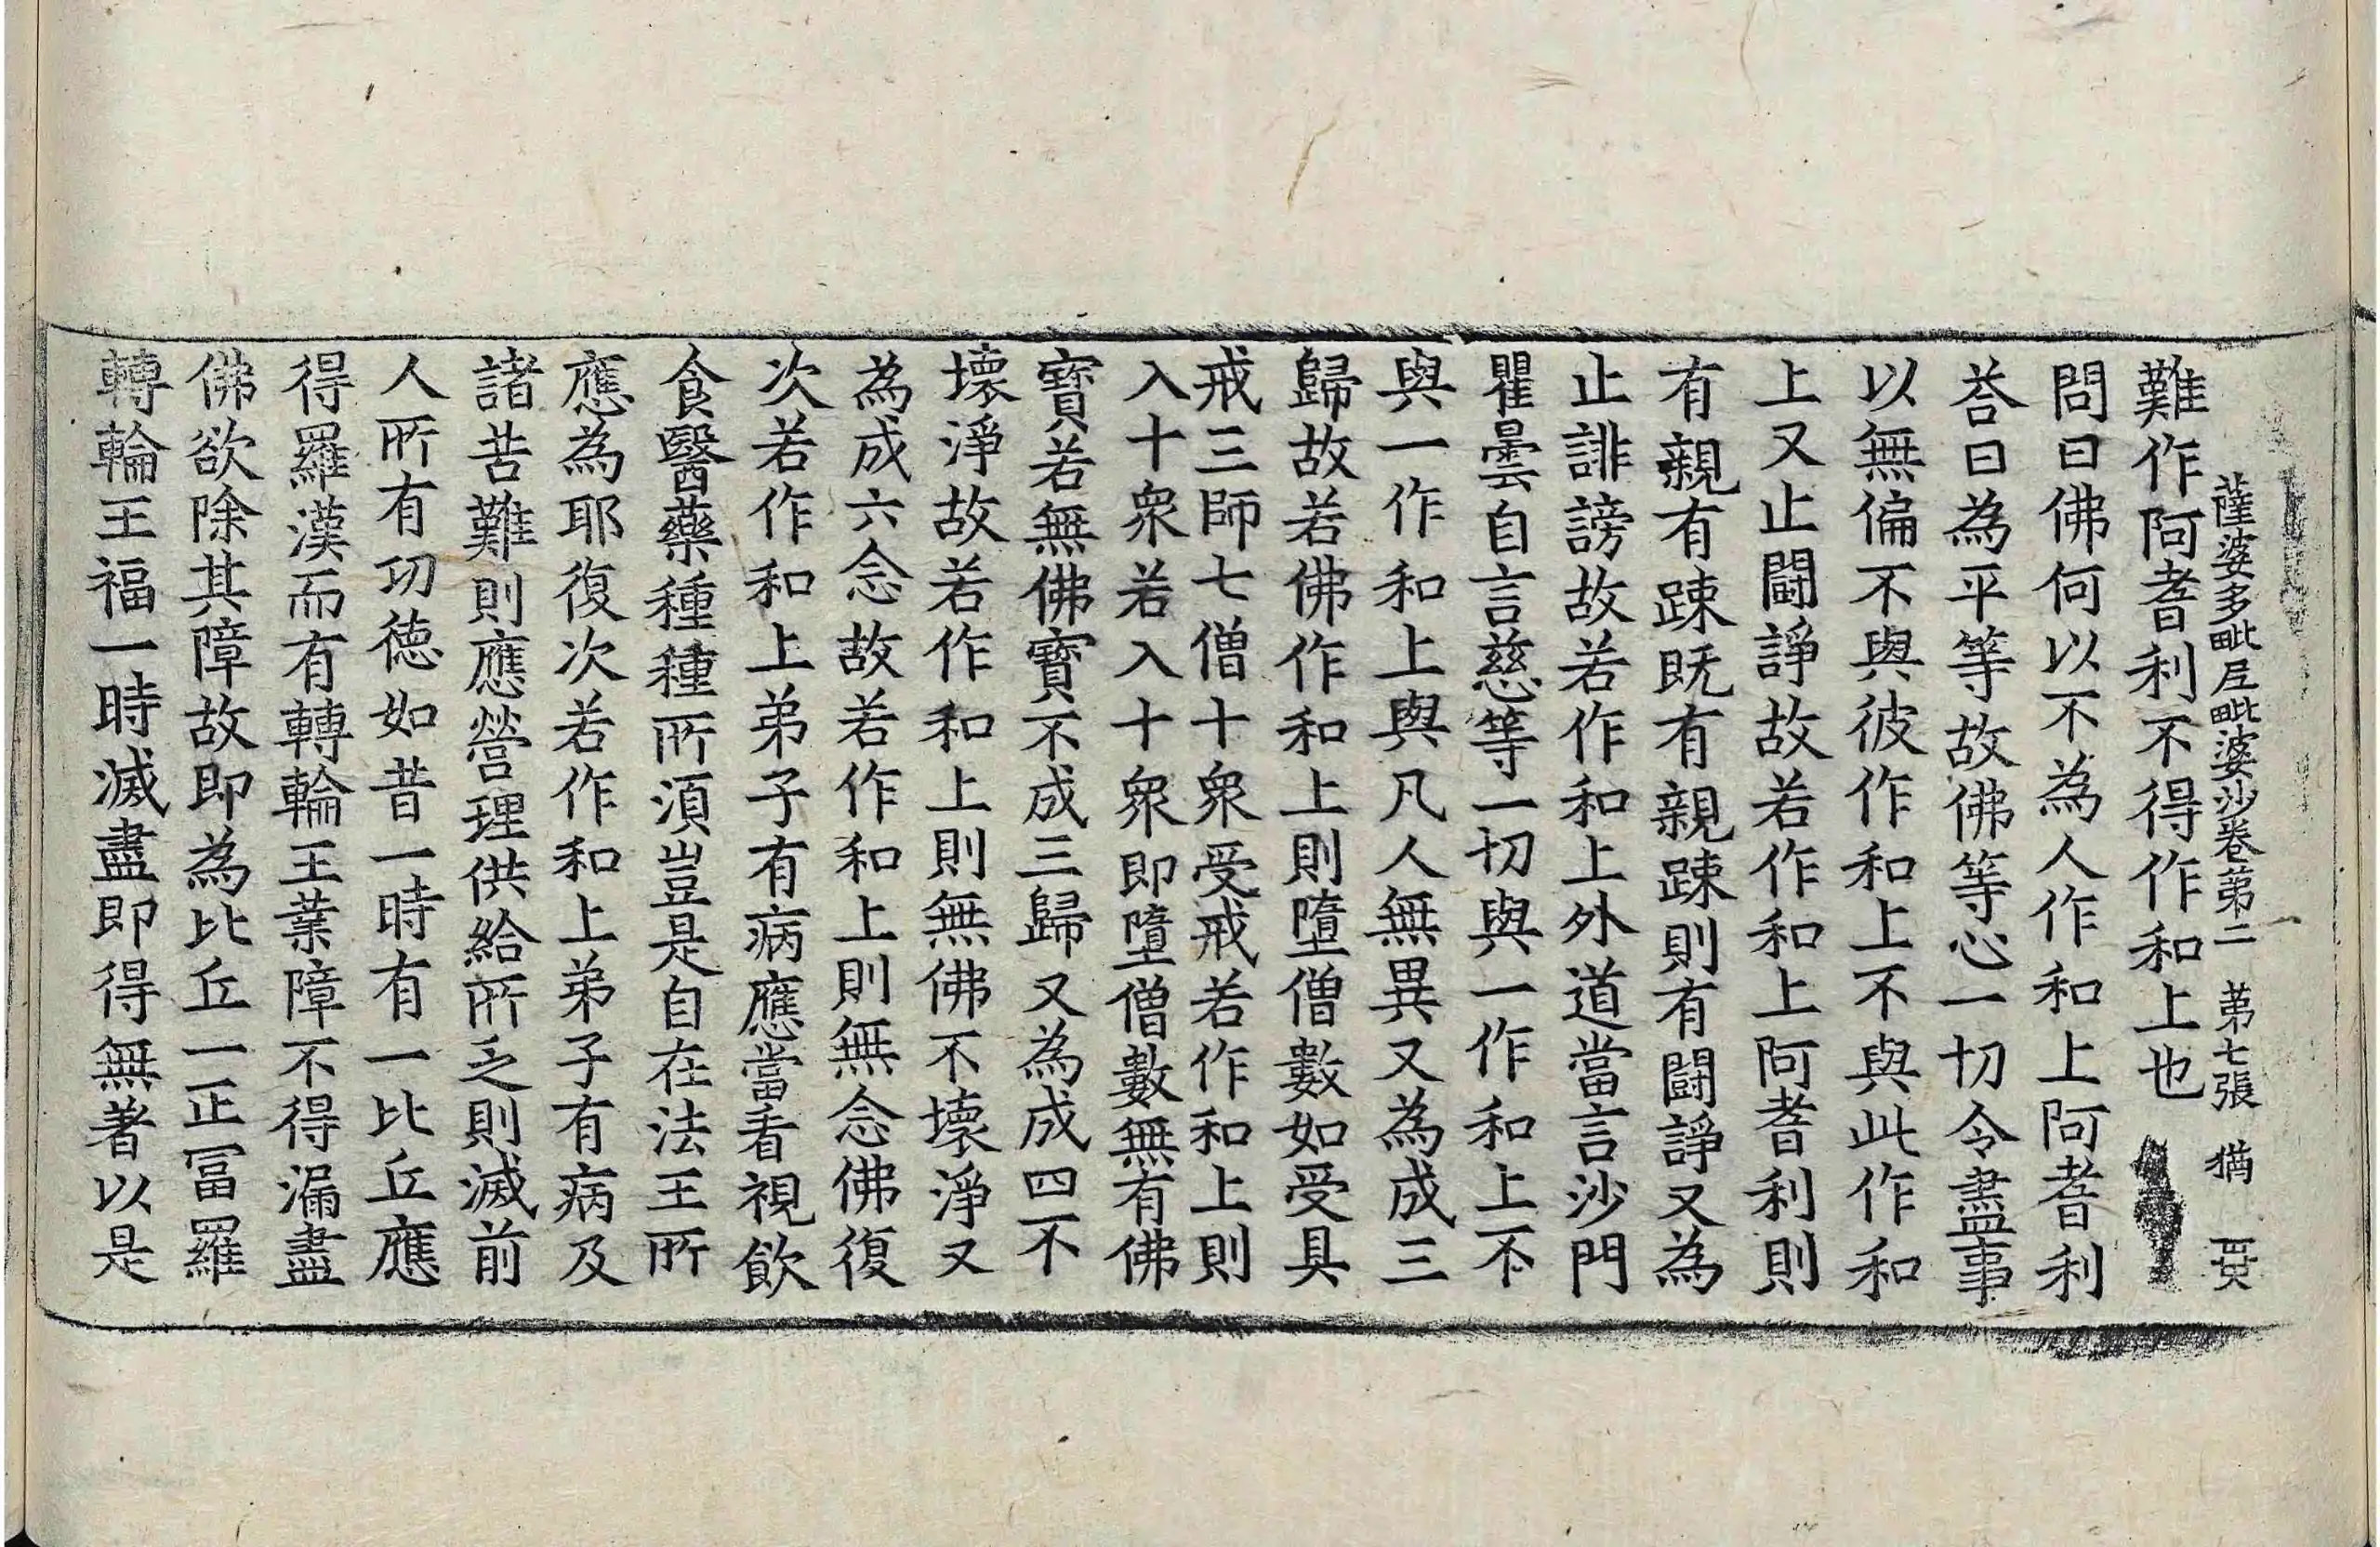 薩婆多毗尼毗婆沙卷第二 第七張 猶
難作阿耆利不得作和上也
問曰佛何以不為人作和上阿耆利
荅曰為平等故佛等心一切令盡事
以無偏不與彼作和上不與此作和
上又止鬪諍故若作和上阿耆利則
有親有踈既有親踈則有鬪諍又為
止誹謗故若作和上外道當言沙門
瞿曇自言慈等一切與一作和上不
與一作和上與凡人無異又為成三
歸故若佛作和上則墮僧數如受具
戒三師七僧十衆受戒若作和上則
入十衆若入十衆即墮僧數無有佛
寶若無佛寶不成三歸又為成四不
壞淨故若作和上則無佛不壞淨又
為成六念故若作和上則無念佛復
次若作和上弟子有病應當看視飲
食醫藥種種所須豈是自在法王所
應為耶復次若作和上弟子有病及
諸苦難則應營理供給所乏則滅前
人所有功德如昔一時有一比丘應
得羅漢而有轉輪王業障不得漏盡
佛欲除其障故即為比丘一正冨羅
轉輪王福一時滅盡即得無著以是